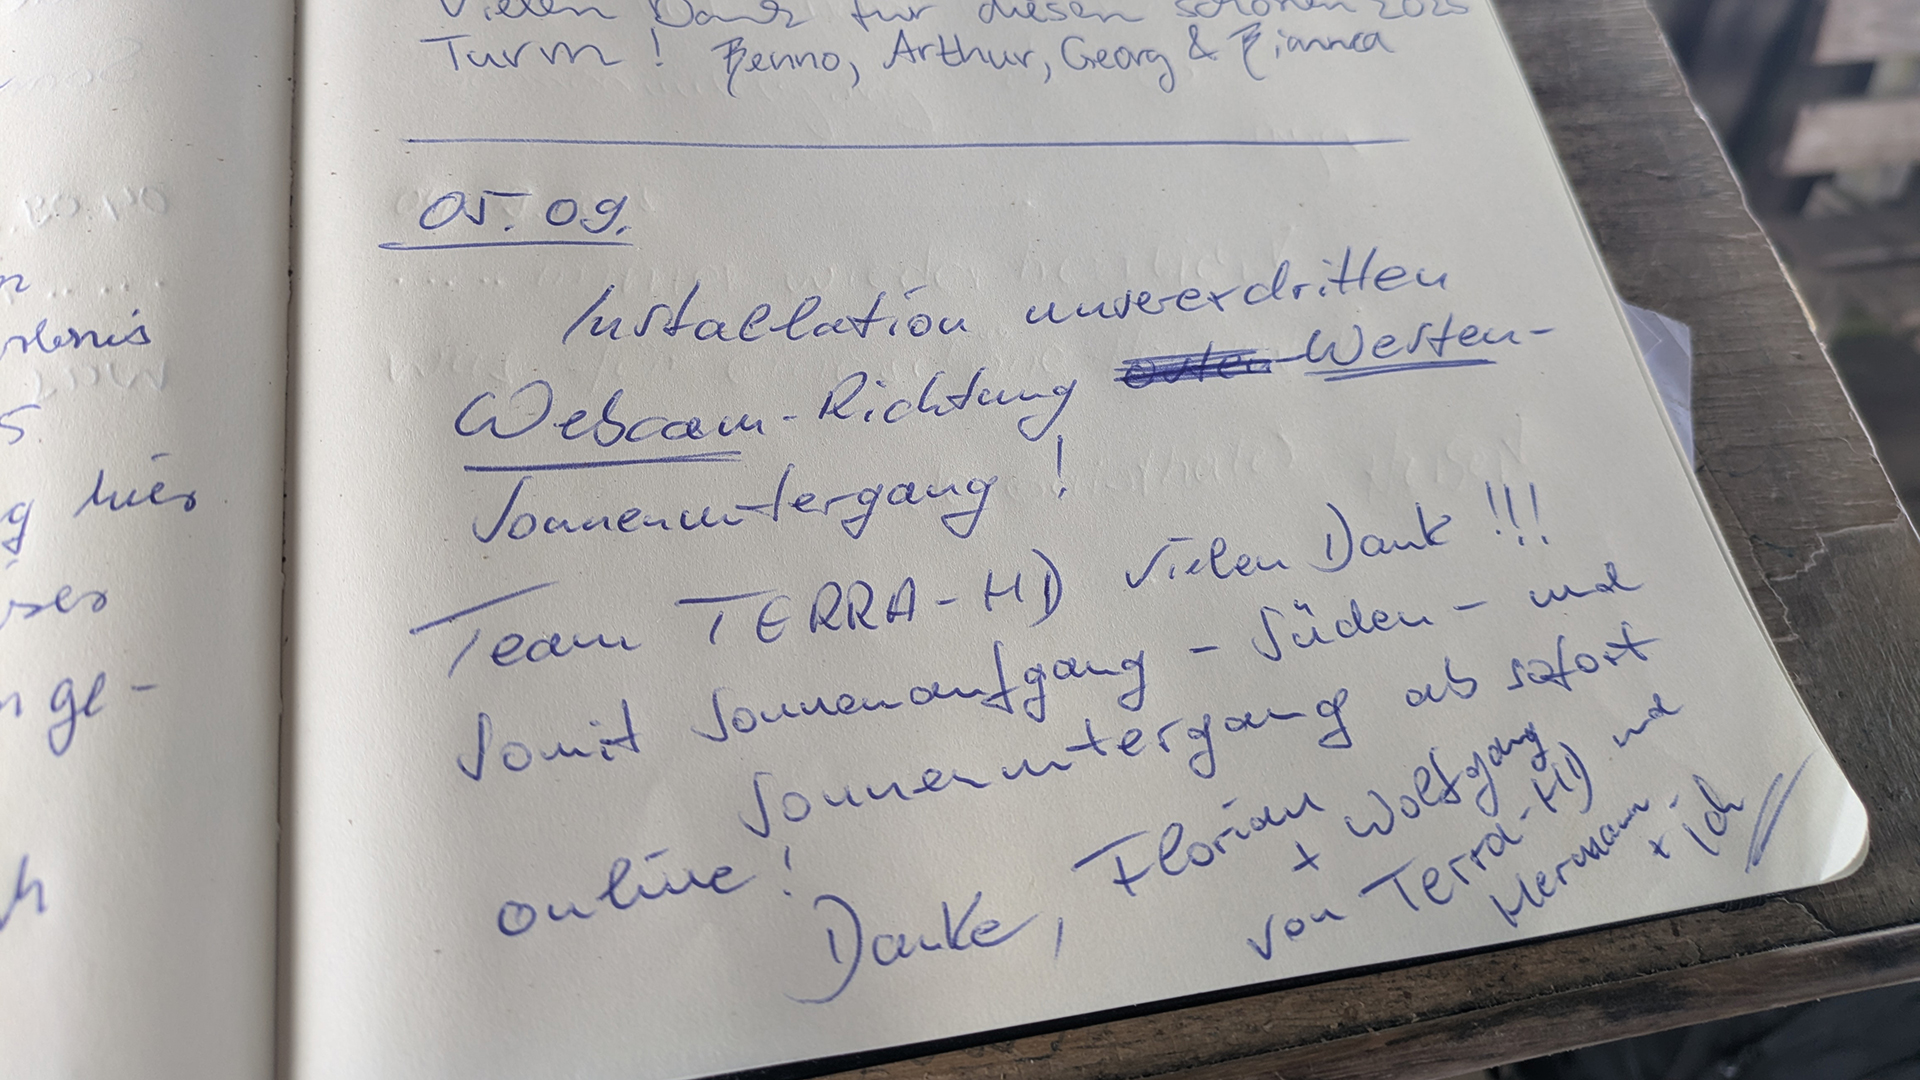 Vielen Dank für diesen schönen 2025
Turm! Benno, Arthur, Georg & Bianca
05.09.
Installation unserer dritten
Webcam-Richtung Westen-
Sonnenuntergang!
Team TERRA-HD Vielen Dank!!!
Somit Sonnenaufgang - Süden - und
Sonnenuntergang ab sofort
online!
Danke, Florian
+ Wolfgang
von Terra-HD und
Hermann
+ ich
hier
ge-